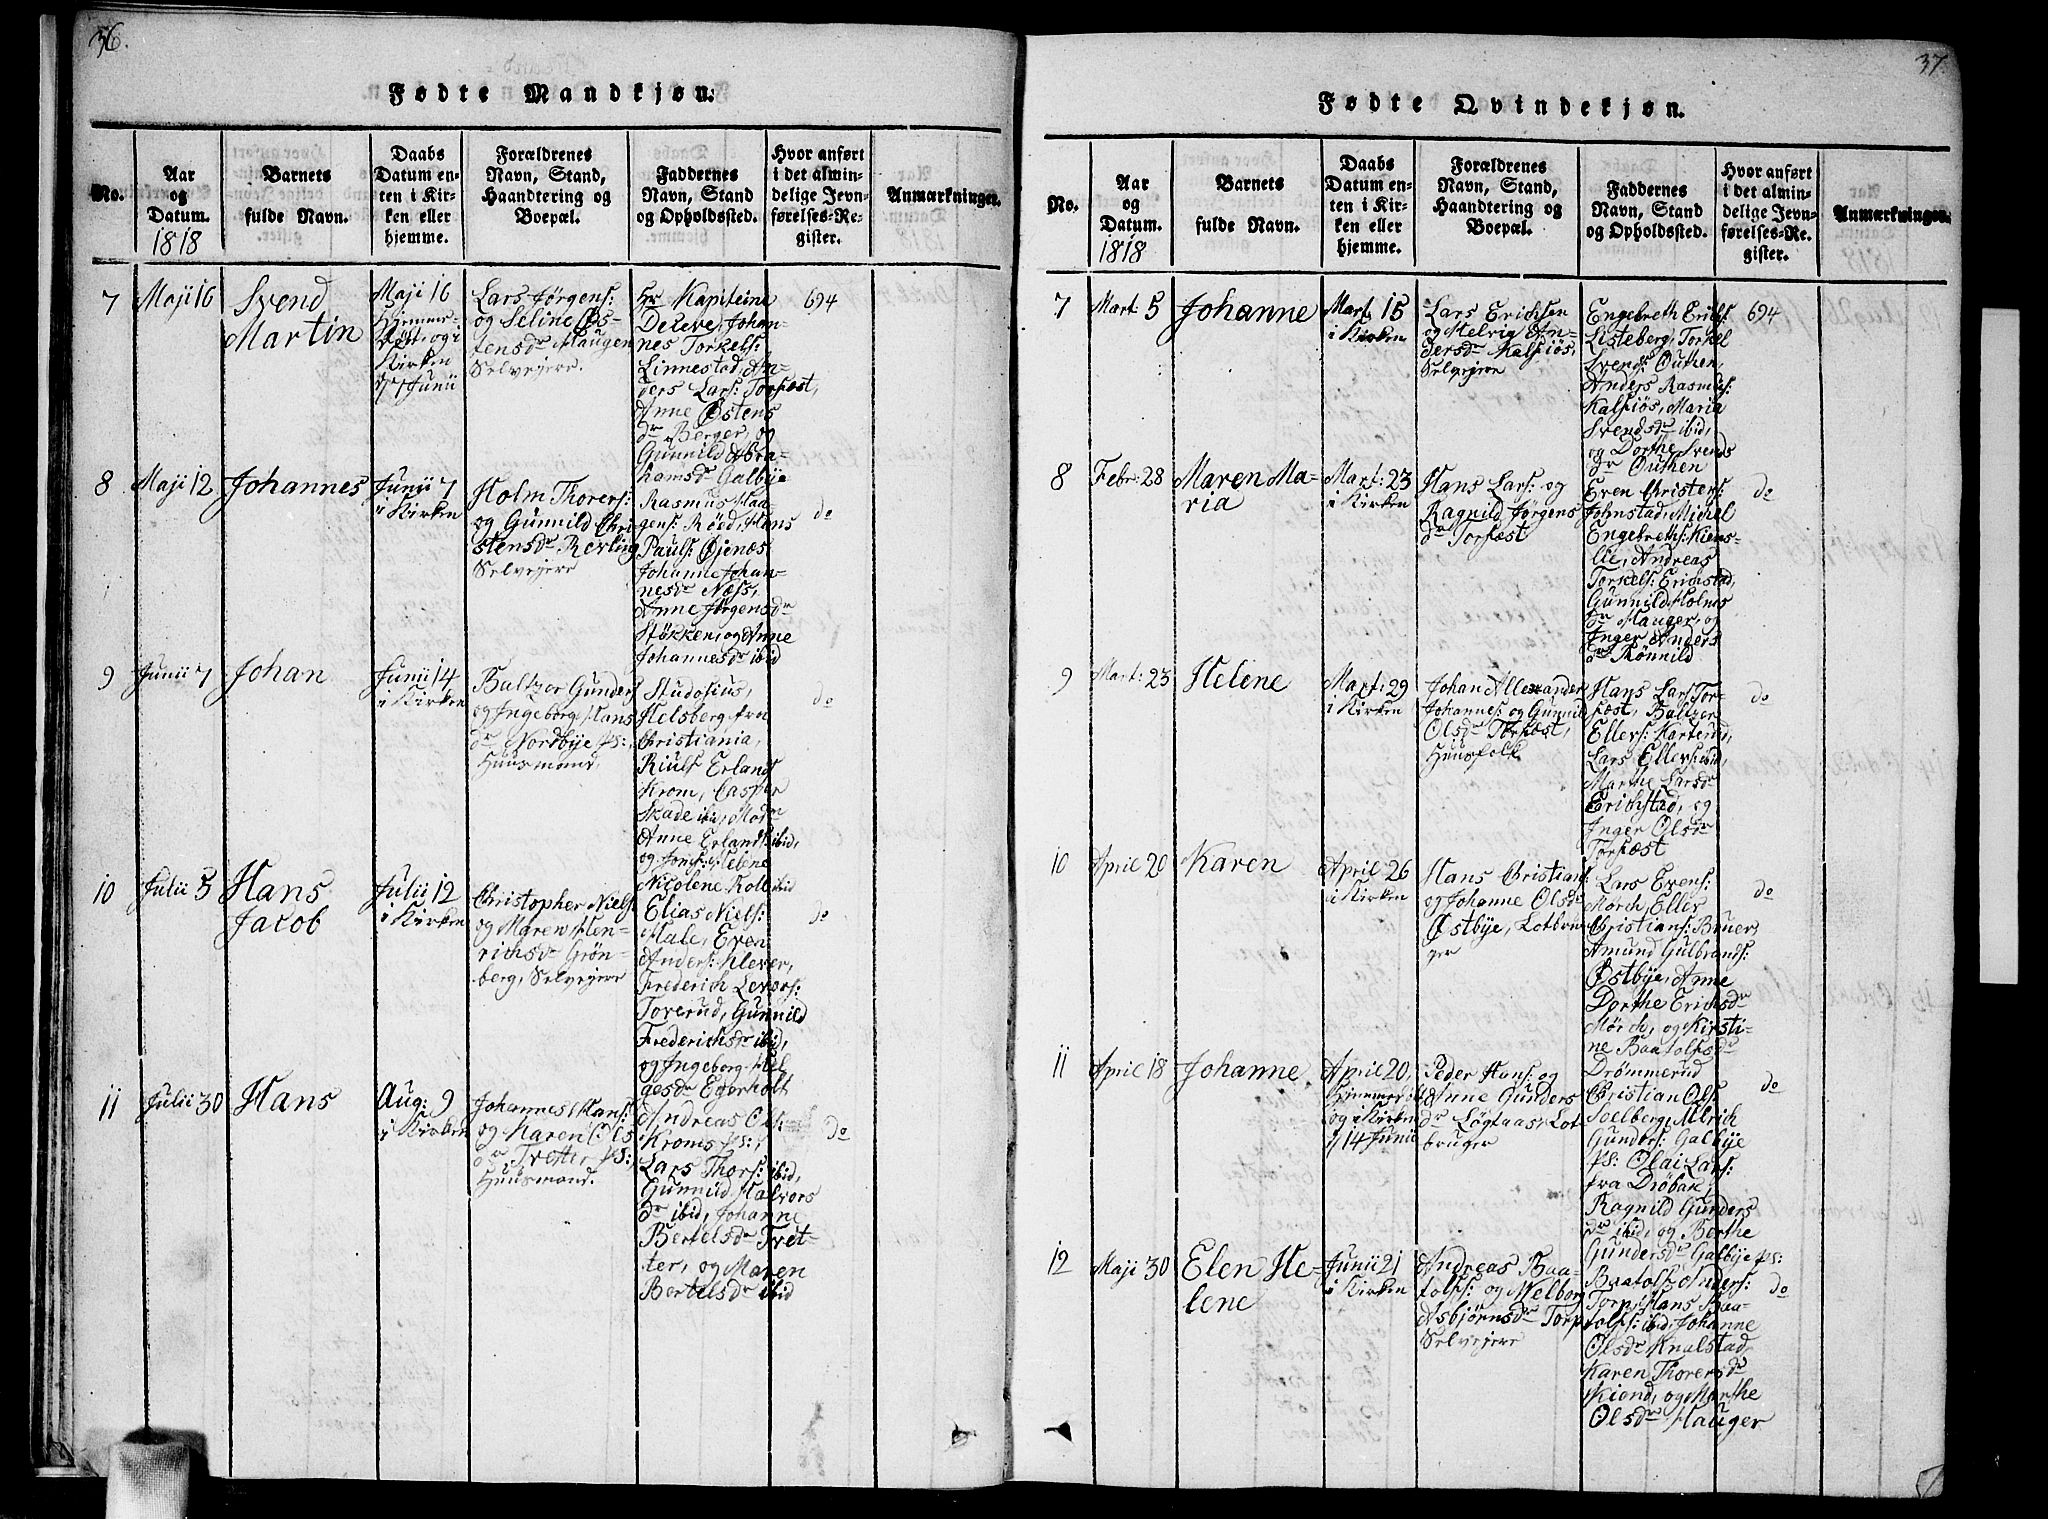 36.
Fødte Mandkjøn.
No.
Aar
og
Datum.
1818
Barnets
fulde Navn.
Daabs
Datum en-
ten i Kir-
ken eller
hjemme.
Forældrenes
Navn, Stand,
Haandtering og
Boepæl.
Faddernes
Navn, Stand
og Opholdssted.
Hvor anført
i det almin-
delige Jevn-
førelses-Re-
gister.
Anmærkninger.
7
Maji 16
Svend
Martin
Maji 16
Hjemme-
døbt, og i
Kirken
7 Junii
Lars Jørgens:
og Seline Øs-
tensdr Haugen
Selvejere.
Hr Kapiteine
Deleve, Johan-
nes Torkels:
Linnestad, An-
ders Lars: Torfæst,
Anne Østens
dr Berger, og
Gunnild Abra-
hamsdr Galbye
694
8
Maji 12
Johannes
Junii 7
i Kirken
Holm Thorers:
og Gunnild Chri-
stensdr Revling
Selvejere
Rasmus Haa-
gens: Röed, Hans
Pauls: Øjenæs
Johanne Johan-
nesdr Næss,
Anne Jørgensdr
Støkken, og Anne
Johannesdr ibid
do
9
Junii 7
Johan
Junii 14
i Kirken
Baltzer Gunders
og Ingeborg Hans
dr Nordbye Ps:,
Huusmand.
Studosius,
Helsberg fra
Christiania,
Riulf Erlands
Krom, Casper
Skade ibid, Modr
Anne Erlands ibid,
og Jomf: Helene
Nicolene Koll ibid
do
10
Julii 5
Hans
Jacob
Julii 12
i Kirken
Christopher Niels:
og Maren Hen-
richsdr Grön-
berg, Selvejere
Elias Niels:
Hale, Even
Anders: Klever,
Frederich Levors:
Toverud, Gunnild
Frederichsdr ibid,
og Ingeborg Hel-
gesdr Egerholt
do
11
Julii 30
Hans
Aug: 9
i Kirken
Johannes Hans:
og Karen Ols
dr Tvetter Ps:,
Huusmand.
Andreas Ols:
Kroms Ps:,
Lars Thors: ibid,
Gunnild Halvors
dr ibid, Johanne
Bertelsdr Tvet-
ter, og Maren
Bertelsdr ibid
do
37.
Fødte Qvindekjøn.
No.
Aar
og
Datum.
1818
Barnets
fulde Navn.
Daabs
Datum en-
ten i Kir-
ken eller
hjemme.
Forældrenes
Navn, Stand,
Haandtering og
Boepæl.
Faddernes
Navn, Stand
og Opholdssted.
Hvor anført
i det almin-
delige Jevn-
førelses-Re-
gister.
Anmærkninger.
7
Mart: 5
Johanne
Mart: 15
i Kirken
Lars Erichsen
og Helvig An-
dersdr Kalsiös,
Selvejere
Engebreth Erichs
Listeberg, Torkel
Svends: Outhen,
Anders Rasmus:
Kalsiös, Maria
Svendsdr ibid,
og Dorthe Svends
dr Outhen
694
8
Febr: 28
Maren Ma-
ria
Mart: 23
i Kirken
Hans Lars: og
Ragnild Jørgens
dr Torfæst
Even Christers:
Johnstad, Michel
Engebreths: Kiens-
lie, Andreas
Torkels: Erichstad,
Gunnild Holms
dr Hauger, og
Inger Anders
dr Rönnild
do
9
Mart: 23
Helene
Mart: 29
i Kirken
Johan Allexander
Johannes: og Gunnil
Olsdr Torfæst,
Huusfolk
Hans Lars: Tor-
fæst, Baltzer
Ellers: Karterud,
Lars Ellers: ibid,
Marthe Larsdr
Erichstad, og
Inger Olsdr
Torfæst
do
10
April 20
Karen
April 26
i Kirken
Hans Christians:
og Johanne Olsdr
Østbye, Lotbru-
ger
Lars Evens:
Mörch, Eller
Christians: Bruer,
Amund Gulbrands:
Østbye, Anne
Dorthe Erichsdr
Mörch, og Kirsti-
ne Baatolfsdr
Drömmerud
do
11
April 18
Johanne
April 20,
Hjemmedöbt
og i Kirken
14 Junii
Peder Hans: og
Anne Gunders
dr Løgtaas, Lot-
bruger
Christian Ols:
Soelberg, Ulrich
Gunders: Galbye
Ps: Olai Lars:
fra Dröbak,
Ragnild Gunders
dr ibid, og Berthe
Gundersdr Galbye Ps:
do
12
Maji 30
Elen He-
lene
Junii 21
i Kirken
Andreas Baa-
tolfs: og Welborg
Asbjørnsdr Torp
Selvejere
Baatolf Anders:
Torp, Hans Baa-
tolfs: ibid, Johanne
Olsdr Knalstad,
Karen Thorersdr
Kiend, og Marthe
Olsdr Hauger
do